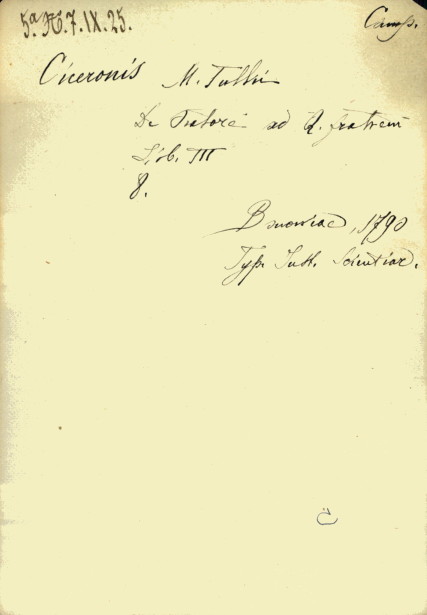 5.ª H.7.IX.25. Camp.
Ciceronis M. Tullii
De Oratore ad Q. fratrem
Lib. III
8.
Bononiae, 1790
Typ. Inst. Scientiar.